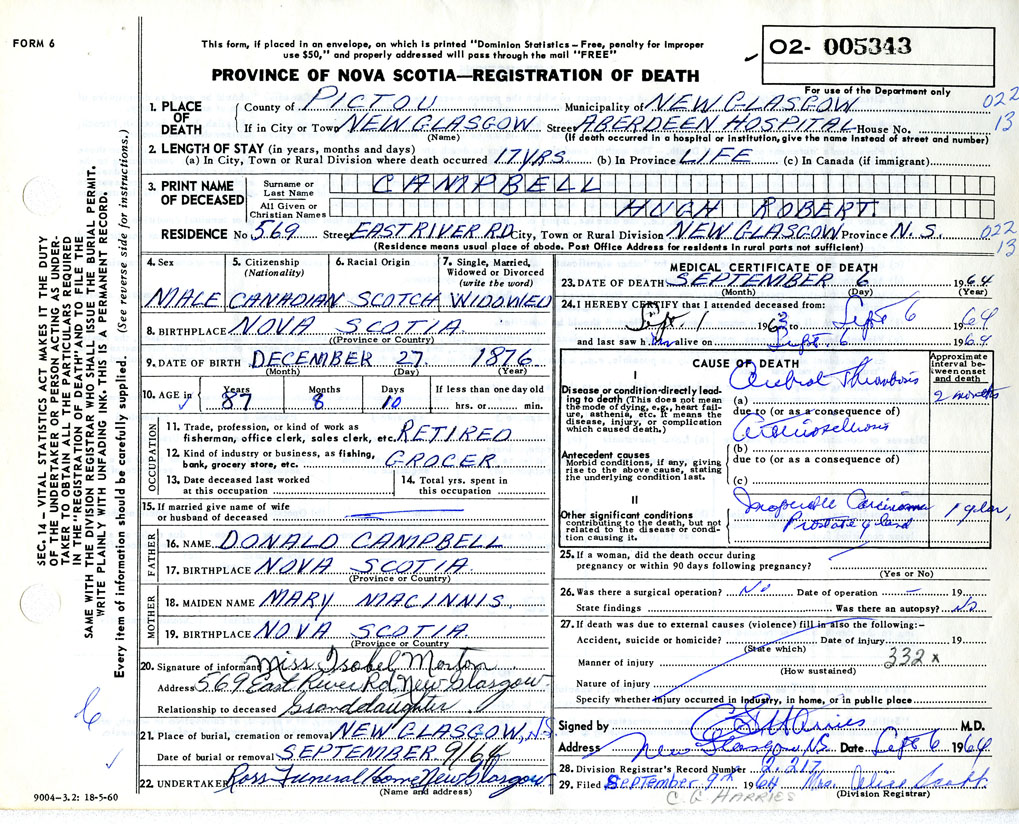 FORM 6
This form, if placed in an envelope, on which is printed "Dominion Statistics – Free, penalty for improper
use $50," and properly addressed will pass through the mail "FREE"
PROVINCE OF NOVA SCOTIA—REGISTRATION OF DEATH
02- 005343
For use of the Department only
SEC. 14 – VITAL STATISTICS ACT MAKES IT THE DUTY
OF THE UNDERTAKER OR PERSON ACTING AS UNDER-
TAKER TO OBTAIN ALL THE PARTICULARS REQUIRED
IN THE "REGISTRATION OF DEATH" AND TO FILE THE
SAME WITH THE DIVISION REGISTRAR WHO SHALL ISSUE THE BURIAL PERMIT.
WRITE PLAINLY WITH UNFADING INK. THIS IS A PERMANENT RECORD.
Every item of information should be carefully supplied. (See reverse side for instructions.)
1. PLACE OF DEATH
County of PICTOU Municipality of NEW GLASGOW 022
If in City or Town NEW GLASGOW Street ABERDEEN HOSPITAL House No. 13
(Name) (If death occurred in a hospital or institution, give the name instead of street and number)
2. LENGTH OF STAY (in years, months and days)
(a) In City, Town or Rural Division where death occurred 17 YRS (b) In Province LIFE (c) In Canada (if immigrant)
3. PRINT NAME OF DECEASED
Surname or Last Name CAMPBELL
All Given or Christian Names HUGH ROBERT
RESIDENCE No 569 Street EAST RIVER RD City, Town or Rural Division NEW GLASGOW Province N. S. 022
13
(Residence means usual place of abode. Post Office Address for residents in rural parts not sufficient)
4. Sex
MALE
5. Citizenship (Nationality)
CANADIAN
6. Racial Origin
SCOTCH
7. Single, Married, Widowed or Divorced (write the word)
WIDOWED
8. BIRTHPLACE NOVA SCOTIA
(Province or Country)
9. DATE OF BIRTH DECEMBER 27 1876
(Month) (Day) (Year)
10. AGE in Years Months Days If less than one day old
87 8 10 hrs. or min.
OCCUPATION
11. Trade, profession, or kind of work as
fisherman, office clerk, sales clerk, etc. RETIRED
12. Kind of industry or business, as fishing,
bank, grocery store, etc. GROCER
13. Date deceased last worked
at this occupation
14. Total yrs. spent in
this occupation
15. If married give name of wife
or husband of deceased
FATHER
16. NAME DONALD CAMPBELL
17. BIRTHPLACE NOVA SCOTIA
(Province or Country)
MOTHER
18. MAIDEN NAME MARY MACINNIS
19. BIRTHPLACE NOVA SCOTIA
(Province or Country)
20. Signature of informant Miss Isobel Morton
Address 569 East River Rd. New Glasgow
Relationship to deceased Granddaughter
21. Place of burial, cremation or removal NEW GLASGOW, NS
Date of burial or removal SEPTEMBER 9/64
22. UNDERTAKER Ross Funeral Home New Glasgow
(Name and address)
9004–3.2: 18-5-60
MEDICAL CERTIFICATE OF DEATH
23. DATE OF DEATH SEPTEMBER 6 1964
(Month) (Day) (Year)
24. I HEREBY CERTIFY that I attended deceased from:
Sept. 1 1963 to Sept 6 1964
and last saw him alive on Sept. 6 1964
CAUSE OF DEATH
Approximate interval between onset and death
I
Disease or condition directly lead-
ing to death (This does not mean
the mode of dying, e.g., heart fail-
ure, asthenia, etc. It means the
disease, injury, or complication
which caused death.)
(a) Cerebral Thrombosis 2 months
due to (or as a consequence of)
(b) Arteriosclerosis
Antecedent causes
Morbid conditions, if any, giving
rise to the above cause, stating
the underlying condition last.
due to (or as a consequence of)
(c)
II
Other significant conditions
contributing to the death, but not
related to the disease or condi-
tion causing it.
Inoperable Carcinoma 1 year,
Prostate gland
25. If a woman, did the death occur during
pregnancy or within 90 days following pregnancy?
(Yes or No)
26. Was there a surgical operation? No Date of operation – 19
State findings Was there an autopsy? No
27. If death was due to external causes (violence) fill in also the following:–
Accident, suicide or homicide? Date of injury 19
(State which)
Manner of injury 332 x
(How sustained)
Nature of injury
Specify whether injury occurred in industry, in home, or in public place
Signed by M.D.
Address New Glasgow, N.S. Date Sept 6 1964
28. Division Registrar's Record Number 2,217
29. Filed September 9th 1964 Mrs. Alice
(Division Registrar)
C. G HARRIES